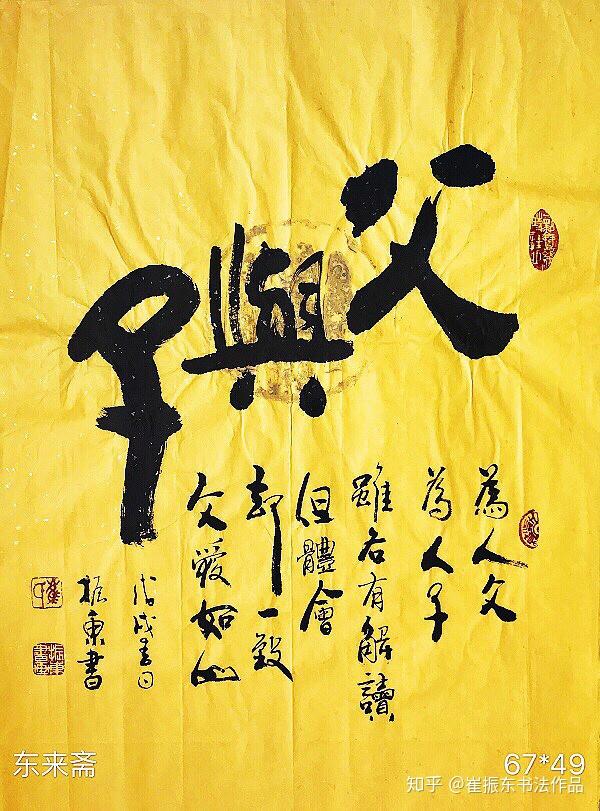 父與子
為人父
為人子
雖各有解讀
但體會
却一致
父愛如山
戊戌春日
振東書
东来斋
67*49
知乎 @崔振东书法作品